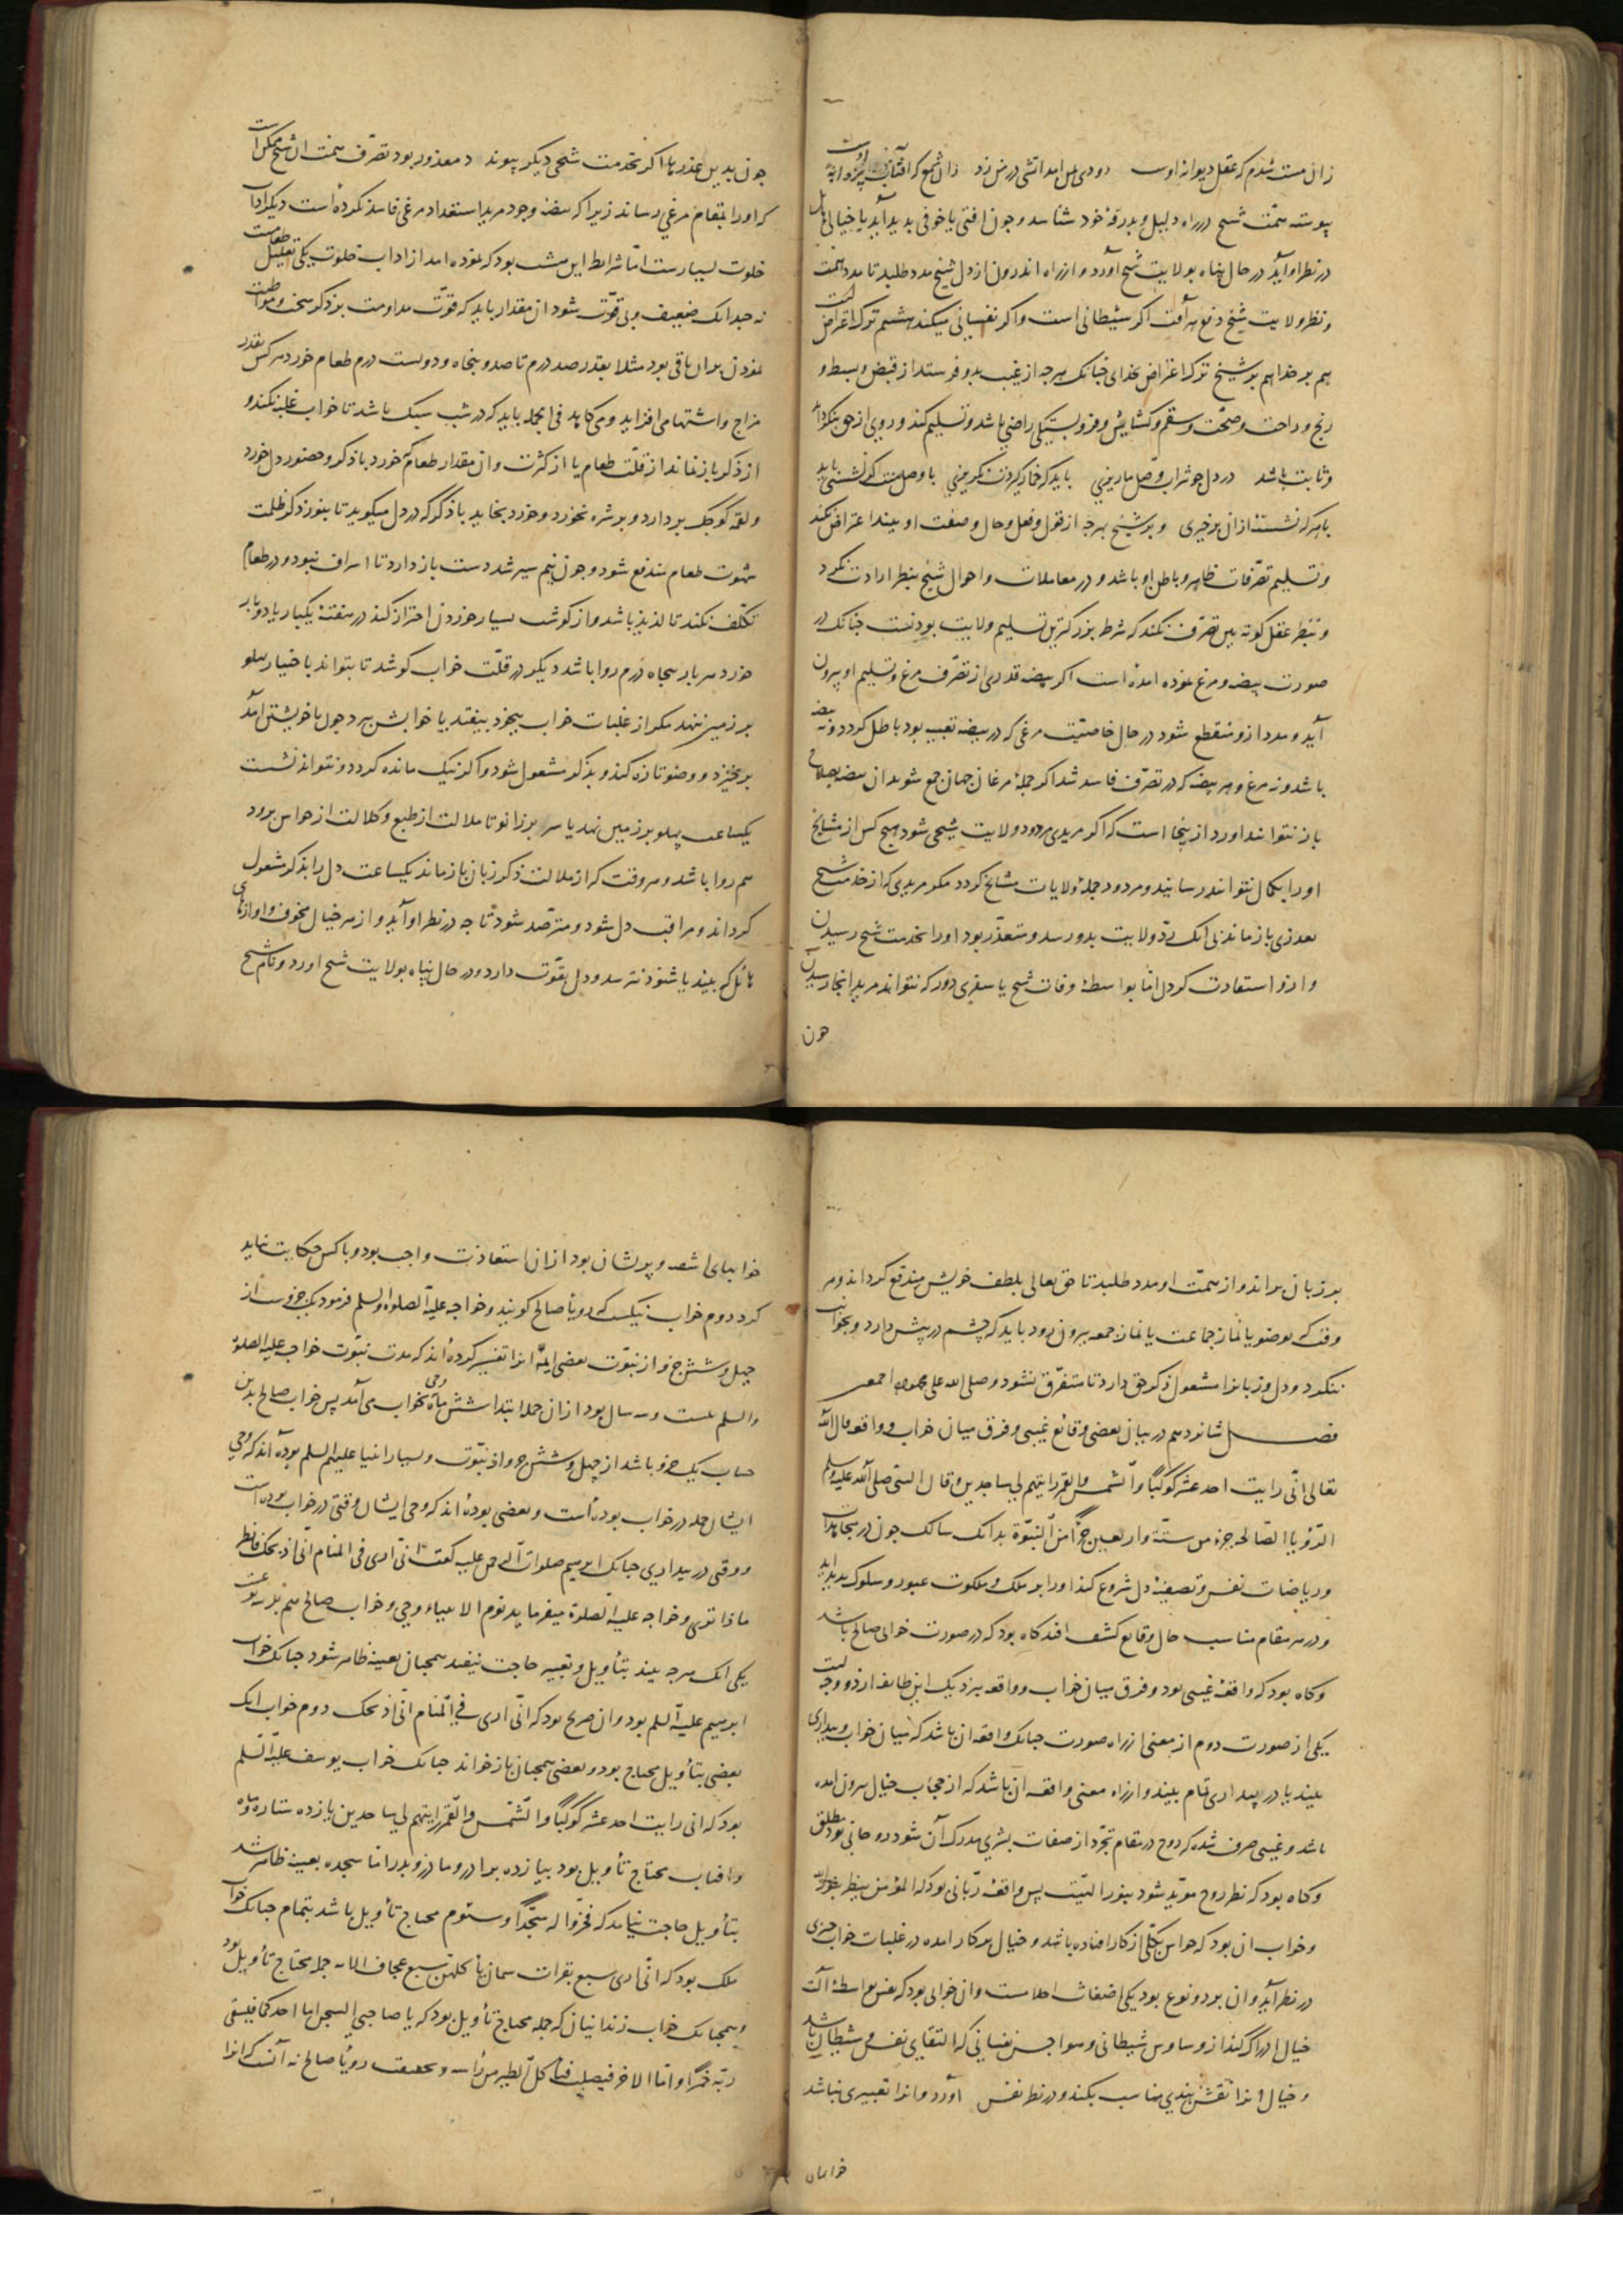 زان مست شدم که عقل دیوانه اوست دودی بمن امد اتشی در من زد زان شمع که افتاب پروانه اوست
پیوسته همّت شیخ در راه دلیل و بدرقهٔ خود شناسد و جون افتی یا خوفی بدید آید یا خیالی هایل
در نظر او آید در حال پناه بولایت شیخ آورد و از راه اندرون از دل شیخ مدد طلبد تا مدد همت
و نظر ولایت شیخ دفع هر آفت اکر شیطانی است و اکر نفسانی میکند هشتم ترک اعتراض است
هم بر خدا هم بر شیخ ترک اعتراض بخدای جنانک هرجه از غیب بدو فرستد از قبض و بسط و
رنج و راحت و صحّت و سقم و کشایش و فروبستکی راضی باشد و تسلیم کند و روی از حق بنکرداند
و ثابت باشد در دل جو شراب وصل ما ریزی باید که خمار کردن نکریزی با وصل منت اکر نشستی باید
با هرکه نشستهٔ ازان برخیزی و بر شیخ بهرجه از قول و فعل و حال و صفت او بیند اعتراض نکند
و تسلیم تصرّفات ظاهر و باطن او باشد و در معاملات و احوال شیخ بنظر ارادت نکرد
و بنظر عقل کوته بین تصرّف نکند که شرط بزرکترین تسلیم ولایت بودنست جنانک در
صورت بیضه و مرغ نموده امده است اکر بیضه قدری از تصرّف مرغ و تسلیم او بیرون
آید و مدد ازو منقطع شود در حال خاصیّت مرغی که در بیضه تعبیه بود باطل کردد و نه بیضه
باشد و نه مرغ و هر بیضه که در تصرّف فاسد شد اکر جملهٔ مرغان جهان جمع شوند ان بیضه بصلاح
باز نتوانند اورد از ینجا است که اکر مریدی مردود ولایت شیخی شود هیچ کس از مشایخ
اورا بکمال نتوانند رسانید و مردود جملهٔ ولایات مشایخ کردد مکر مریدی که از خدمت شیخ
بعذری باز ماند بی انک ردّ ولایت بدو رسد و متعذّر بود اورا بخدمت شیخ رسیدن
و ازو استفادت کردن امّا بواسطهٔ وفات شیخ یا سفری دور که نتواند مرید انجا رسیدن
جون
جون بدین عذرها اکر بخدمت شیخی دیکر پیوندد معذور بود تصرّف همّت ان شیخ ممکن است
که اورا بمقام مرغی رساند زیرا که بیضهٔ وجود مرید استعداد مرغی فاسد نکرده است دیکر اداب
خلوت بسیارست امّا شرایط این هشت بود که نموده امد از اداب خلوت یکی تقلیل طعامست
نه جندانک ضعیف و بی قوّت شود ان مقدار باید که قوّت مداومت بر ذکر سخت و مواظبت
نمودن بران باقی بود مثلا بقدر صد درم تا صد و بنجاه و دویست درم طعام خورد هرکس بقدر
مزاج و اشتها می افزاید و می کاهد فی الجمله باید که در شب سبک باشد تا خواب غلبه نکند و
از ذکر باز نماند از قلّت طعام یا از کثرت و ان مقدار طعام که خورد با ذکر و حضور دل خورد
و لقمه کوچک بردارد و بر شره نخورد و خورد بخاید با ذکر که در دل میکوید تا بنور ذکر ظلمت
شهوت طعام مندفع شود و جون نیم سیر شد دست باز دارد تا اسراف نبود و در طعام
تکلّف نکند تا لذیذ باشد و از کوشت بسیار خوردن احتراز کند در هفتهٔ یکبار یا دو بار
خورد هر بار بنجاه درم روا باشد دیکر در قلّت خواب کوشد تا بتواند باختیار پهلو
بر زمین ننهد مکر از غلبات خواب بیخود بیفتد یا خوابش ببرد جون با خویشتن آمد
برخیزد و وضو تازه کند و بذکر مشغول شود و اکر نیک مانده کردد و نتواند نشست
یکساعت پهلو بر زمین نهد یا سر بر زانو تا ملالت از طبع و کلالت از حواس برود
هم روا باشد و هر وقت که از ملالت ذکر زبان باز ماند یکساعت دل را بذکر مشغول
کرداند و مراقب دل شود و مترصّد شود تا جه در نظر او آید و از هر خیال مخوف و اوازهای
هائل که بیند یا شنود نترسد و دل بقوّت دارد و در حال پناه بولایت شیخ اورد و نام شیخ
بر زبان براند و از همّت او مدد طلبد تا حق تعالی بلطف خویش مندفع کرداند و هر
وقت که بوضو یا نماز جماعت یا نماز جمعه بیرون رود باید که جشم در پیش دارد و بجوانب
ننکرد و دل و زبانرا مشغول ذکر حق دارد تا متفرّق نشود و صلی الله علی محمد و اله اجمعین
فصل شانزدهم در بیان بعضی وقائع غیبی و فرق میان خواب و واقعه قال الله
تعالی انّی رایت احد عشر کوکبًا والشّمس والقمر رایتهم لی ساجدین و قال النبیّ صلی الله علیه وسلم
الرّؤیا الصّالحه جزء من ستّة واربعین جزًأ من النبوّة بدانک سالک جون در مجاهدات
و ریاضات نفس و تصفیهٔ دل شروع کند اورا بر ملک و ملکوت عبور و سلوک بدید آید
و در هر مقام مناسب حال وقایع کشف افتد کاه بود که در صورت خوابی صالح باشد
و کاه بود که واقعهٔ غیبی بود و فرق میان خواب و واقعه بنزدیک این طایفه از دو وجهست
یکی از صورت دوم از معنی از راه صورت جنانک واقعه ان باشد که میان خواب و بیداری
بیند یا در بیداری تمام بیند و از راه معنی واقعه ان باشد که از حجاب خیال بیرون امده
باشد و غیبی صرف شده که روح در مقام تجرّد از صفات بشری مدرک آن شود روحانی بود مطلق
و کاه بود که نظر روح مؤیّد شود بنور الهیّت پس واقعهٔ ربّانی بود که المؤمن ینظر بنور الله
و خواب ان بود که حواس بکلّی از کار افتاده باشد و خیال بر کار امده در غلبات خواب جیزی
در نظر آید و ان بر دو نوع بود یکی اضغاث احلامست و ان خوابی بود که نفس بواسطهٔ آلت
خیال ادراک کند از وساوس شیطانی و هواجس نفسانی که القای نفس و شیطان باشد
و خیال انرا نقش بندی مناسب بکند و در نظر نفس آورد و انرا تعبیری نباشد
خوابهای
خوابهای اشفته و پریشان بود ازان استعاذت واجب بود و با کس حکایت نباید
کرد دوم خواب نیکست که رویأ صالح کویند و خواجه علیه الصلوة والسلم فرمود یک جزوست از
جهل و شش جزو از نبوّت بعضی ائمّه انرا تفسیر کرده اند که مدت نبوّت خواجه علیه الصلوة
والسلم بیست و سه سال بود ازان جمله ابتدا شش ماه وحی بخواب می آمد پس خواب صالح بدین
حساب یک جزو باشد از جهل و شش جزو از نبوّت و بسیار انبیا علیهم السلم بوده اند که وحی
ایشان جمله در خواب بوده است و بعضی بوده اند که وحی ایشان وقتی در خواب بوده است
و وقتی در بیداری جنانک ابرهیم صلوات الرحمن علیه کفت انّی اری فی المنام انّی اذبحک فانظر
ماذا تری و خواجه علیه الصّلوة میفرماید نوم الانبیاء وحی و خواب صالح هم بر سه نوعست
یکی انک هرجه بیند بتأویل و تعبیر حاجت نیفتد همجنان بعینه ظاهر شود جنانک خواب
ابرهیم علیه السلم بود و ان صریح بود که انّی اری فی المنام انّی اذبحک دوم خواب انک
بعضی بتأویل محتاج بود و بعضی همجنان باز خواند جنانک خواب یوسف علیه السّلم
بود که انی رایت احد عشر کوکبًا والشّمس والقمر رایتهم لی ساجدین یازده ستاره و ماه
و افتاب محتاج تأویل بود بیازده برادر و مادر و پدر امّا سجده بعینه ظاهر شد
بتأویل حاجت نیامد که فخرّوا له سجّدًا و سئوم محتاج تأویل باشد بتمام جنانک خواب
ملک بود که انّی اری سبع بقرات سمان یأکلهن سبع عجاف الایه جمله محتاج تأویل بود
و همجنانک خواب زندانیان که جمله محتاج تأویل بود که یا صاحبی السجن اما احدکما فیسقی
ربّه خمرًا و امّا الاخر فیصلب فتأکل الطیر من رأسه و بحقیقت رویأ صالح نه آنست که انرا